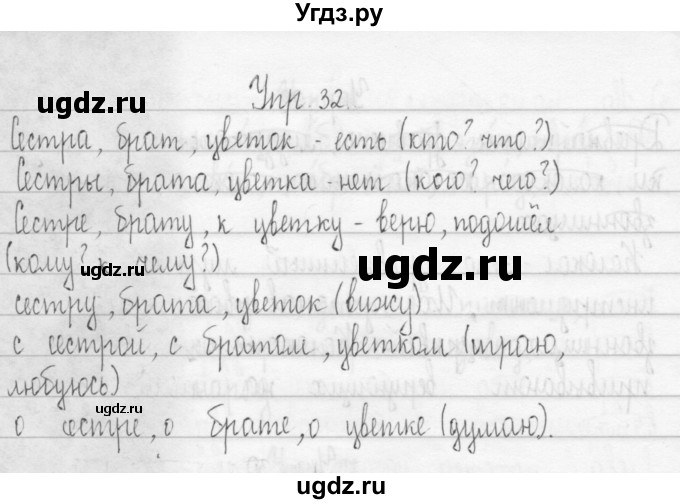 Угдз.ру
Упр. 32.
Сестра, брат, цветок - есть (кто? что?)
Сестры, брата, цветка - нет (кого? чего?)
Сестре, брату, к цветку - верю, подошёл
(кому? к чему?)
сестру, брата, цветок (вижу)
с сестрой, с братом, цветком (играю,
любуюсь)
о сестре, о брате, о цветке (думаю).
ugdz.ru
ugdz.ru
ugdz.ru
ugdz.ru
ugdz.ru
ugdz.ru
ugdz.ru
ugdz.ru